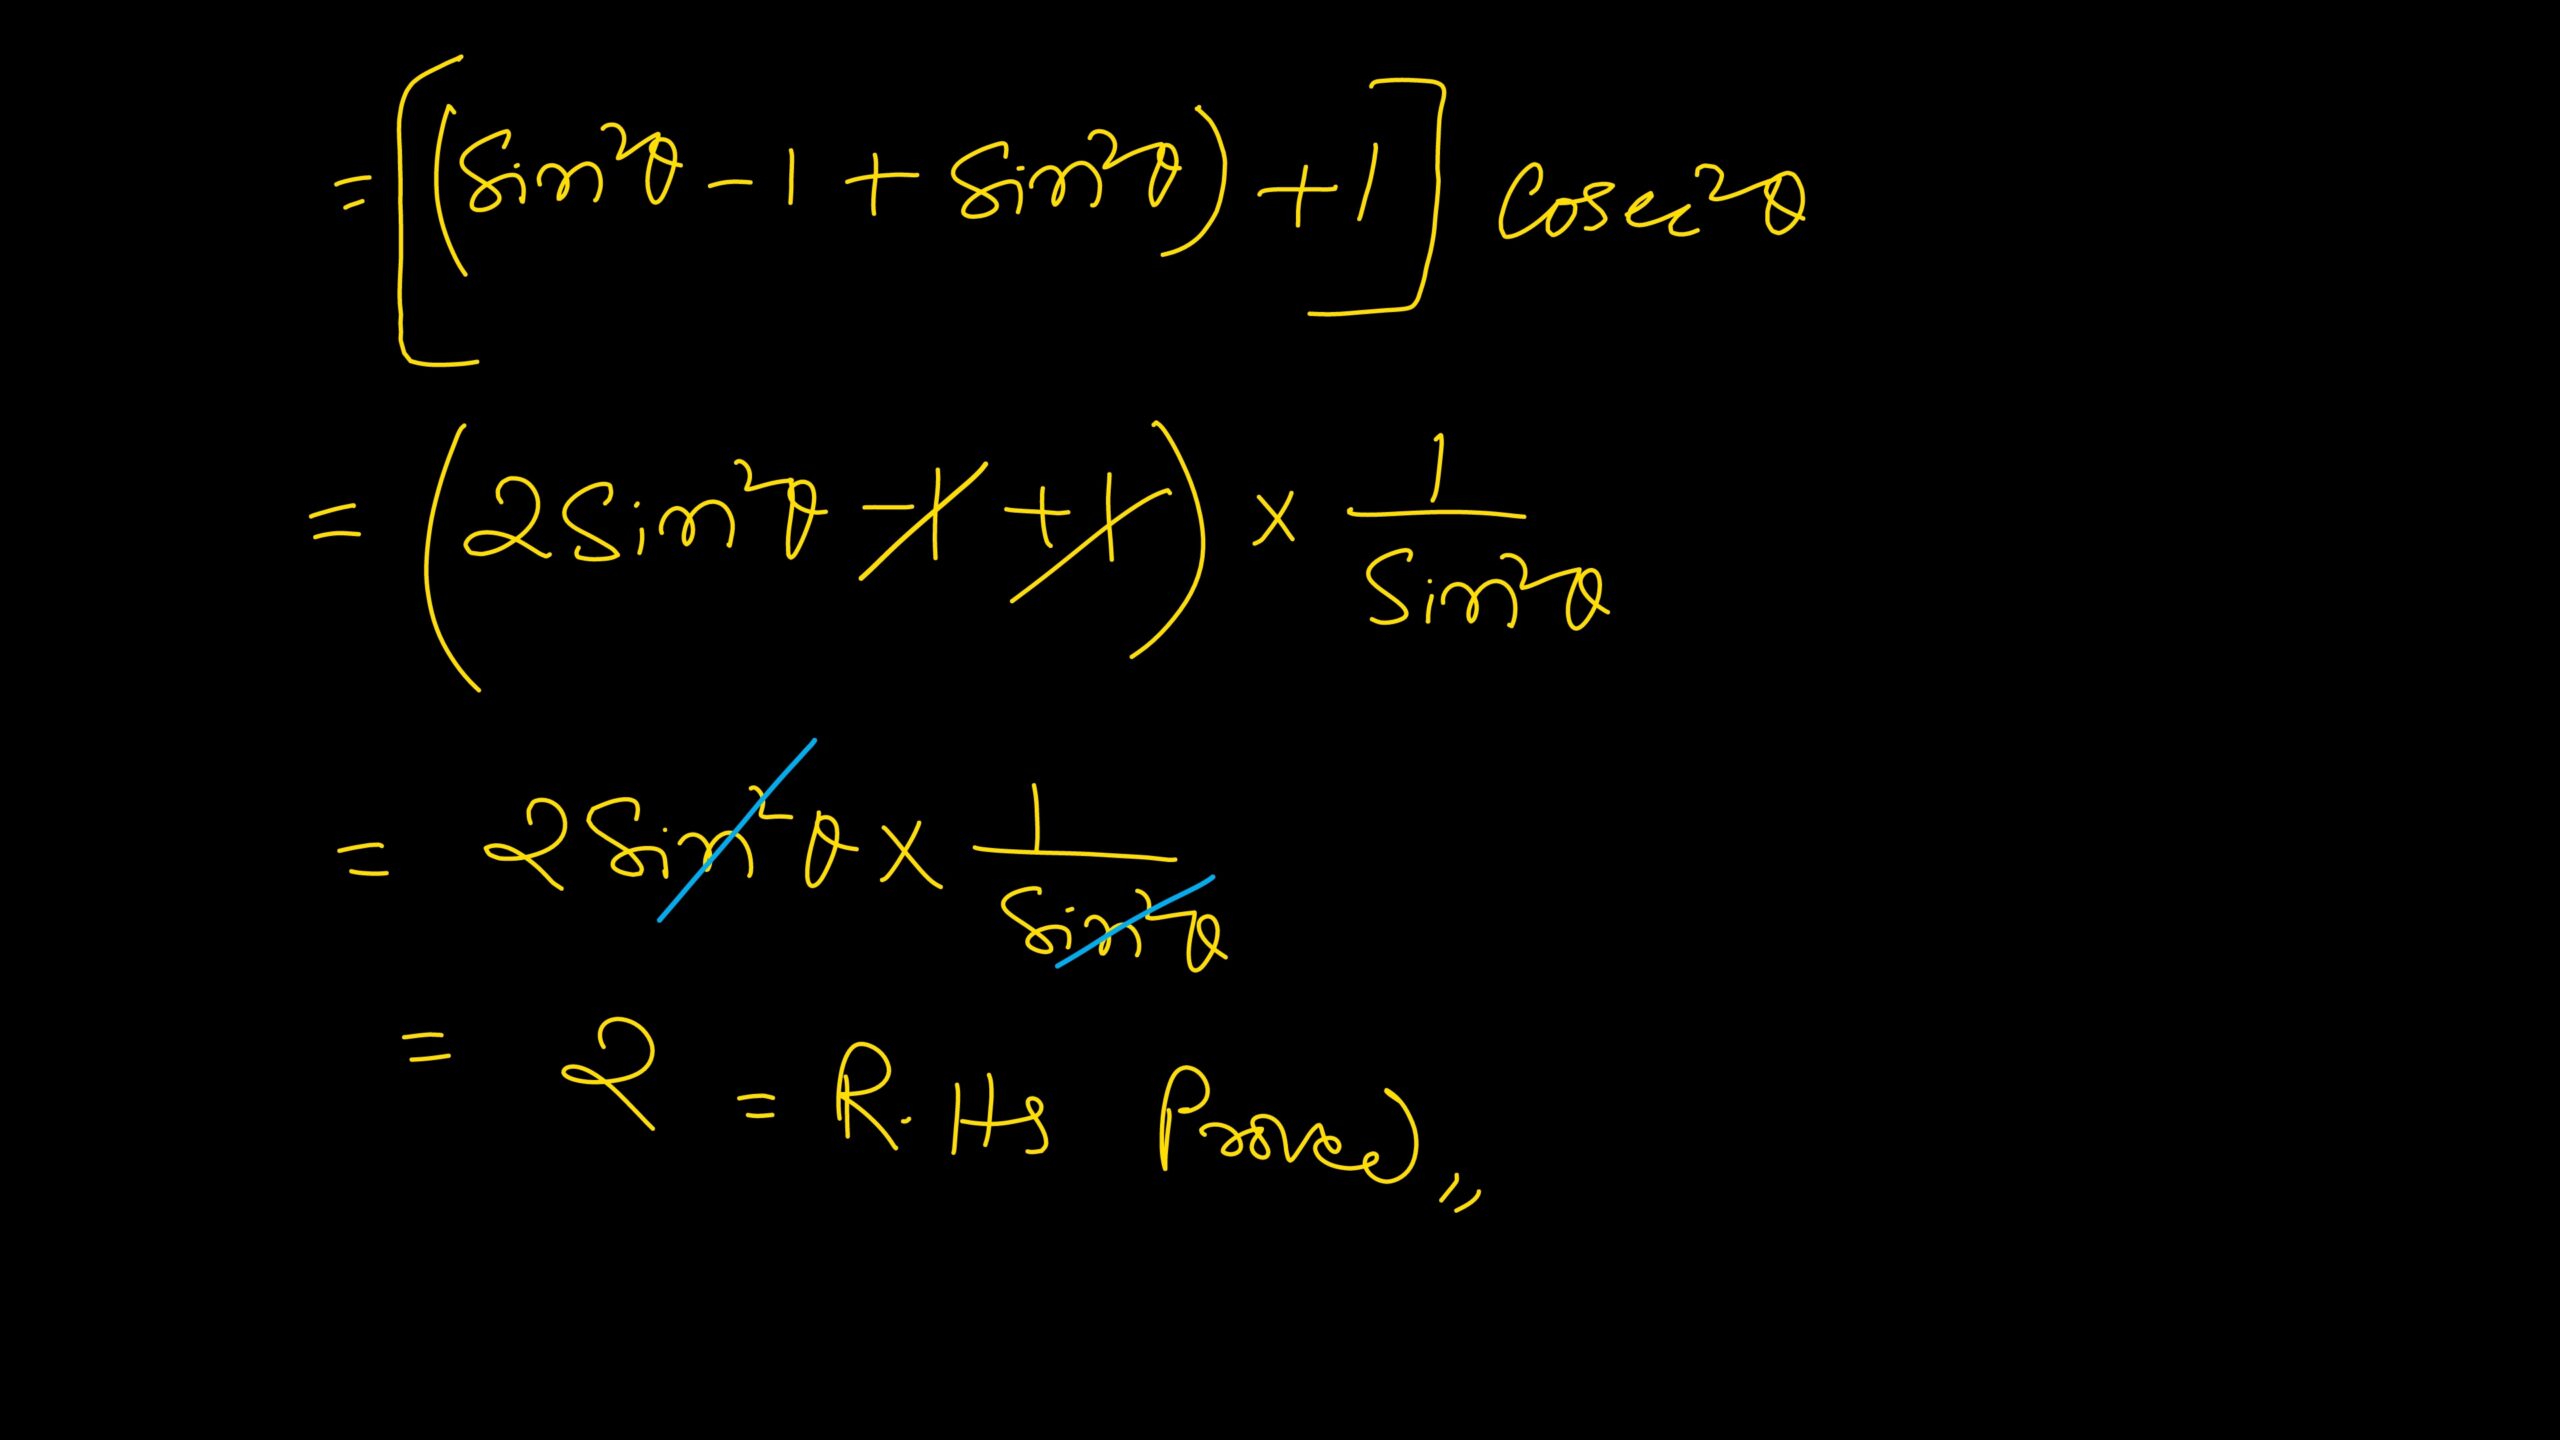 = [(Sin²θ - 1 + Sin²θ) + 1] Cosec²θ
= (2Sin²θ - 1 + 1) × 1/Sin²θ
= 2Sin²θ × 1/Sin²θ
= 2 = R.Hs Proved,,